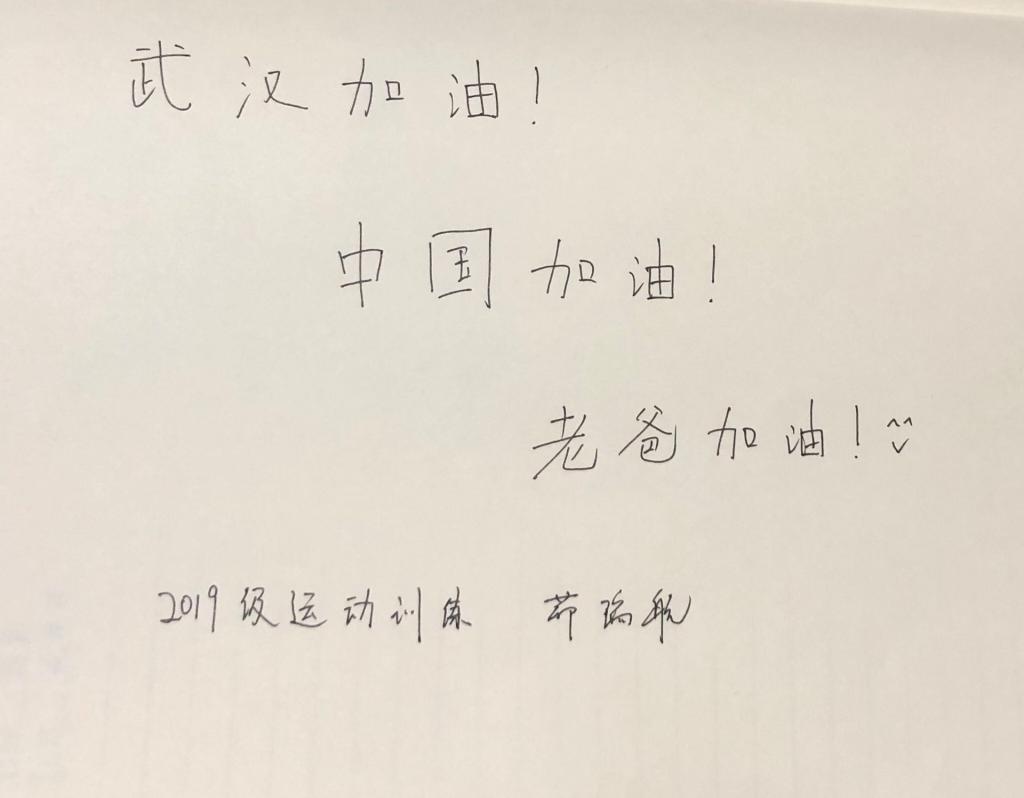 武汉加油!
中国加油!
老爸加油! ^^
2019级运动训练 茆瑞航